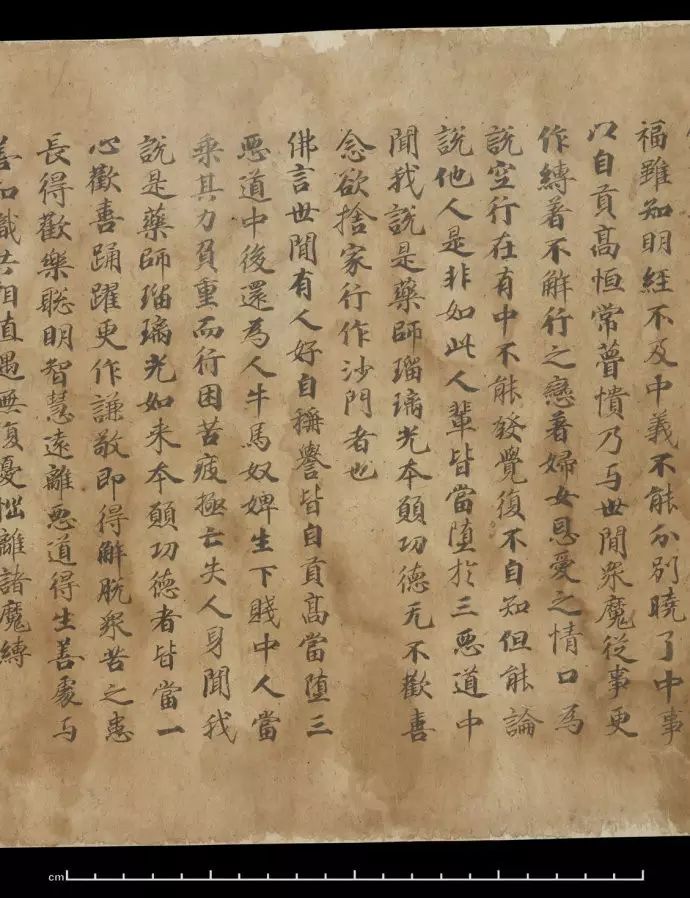 福雖知明經不及中義不能分別曉了中事
以自貢高恒常瞢憒乃与世間衆魔從事更
作縛著不解行之戀著婦女恩愛之情口為
說空行在有中不能發覺復不自知但能論
說他人是非如此人輩皆當墮於三惡道中
聞我說是藥師瑠璃光本願功德无不歡喜
念欲捨家行作沙門者也
佛言世間有人好自稱譽皆自貢高當墮三
惡道中後還為人牛馬奴婢生下賤中人當
乘其力負重而行困苦疲極亡失人身聞我
說是藥師瑠璃光如来本願功德者皆當一
心歡喜踊躍更作謙敬即得解脫衆苦之患
長得歡樂聰明智慧遠離惡道得生善處与
善知識共相值遇無復憂惱離諸魔縛
cm